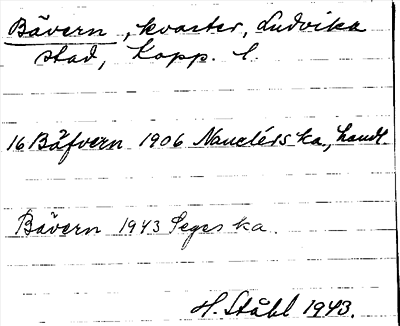 Bävern, kvarter, Ludvika
stad, Kopp. l.
16 Bäfvern 1906 Nauclérs ka, handl.
Bävern 1943 Segers ka.
H. Ståhl 1943.